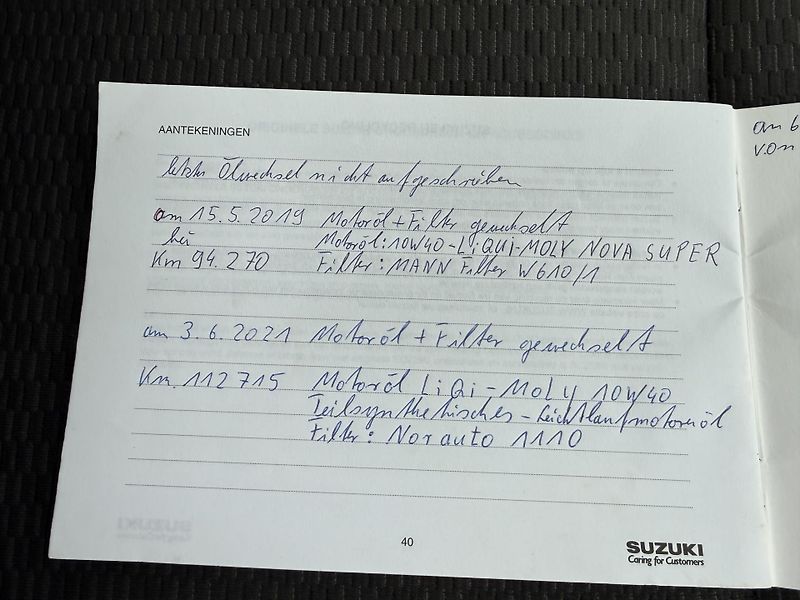 AANTEKENINGEN
letzter Ölwechsel nicht aufgeschrieben
am 15.5.2019 Motoröl + Filter gewechselt
bei Motoröl: 10W40-LiQUI-MOLY NOVA SUPER
Km 94.270 Filter: MANN Filter W610/1
am 3.6.2021 Motoröl + Filter gewechselt
Km. 112715 Motoröl LiQi-MOLY 10W40
Teilsynthetisches-Leichtlaufmotoröl
Filter: Norauto 1110
40
SUZUKI
Caring for Customers
an 6
von